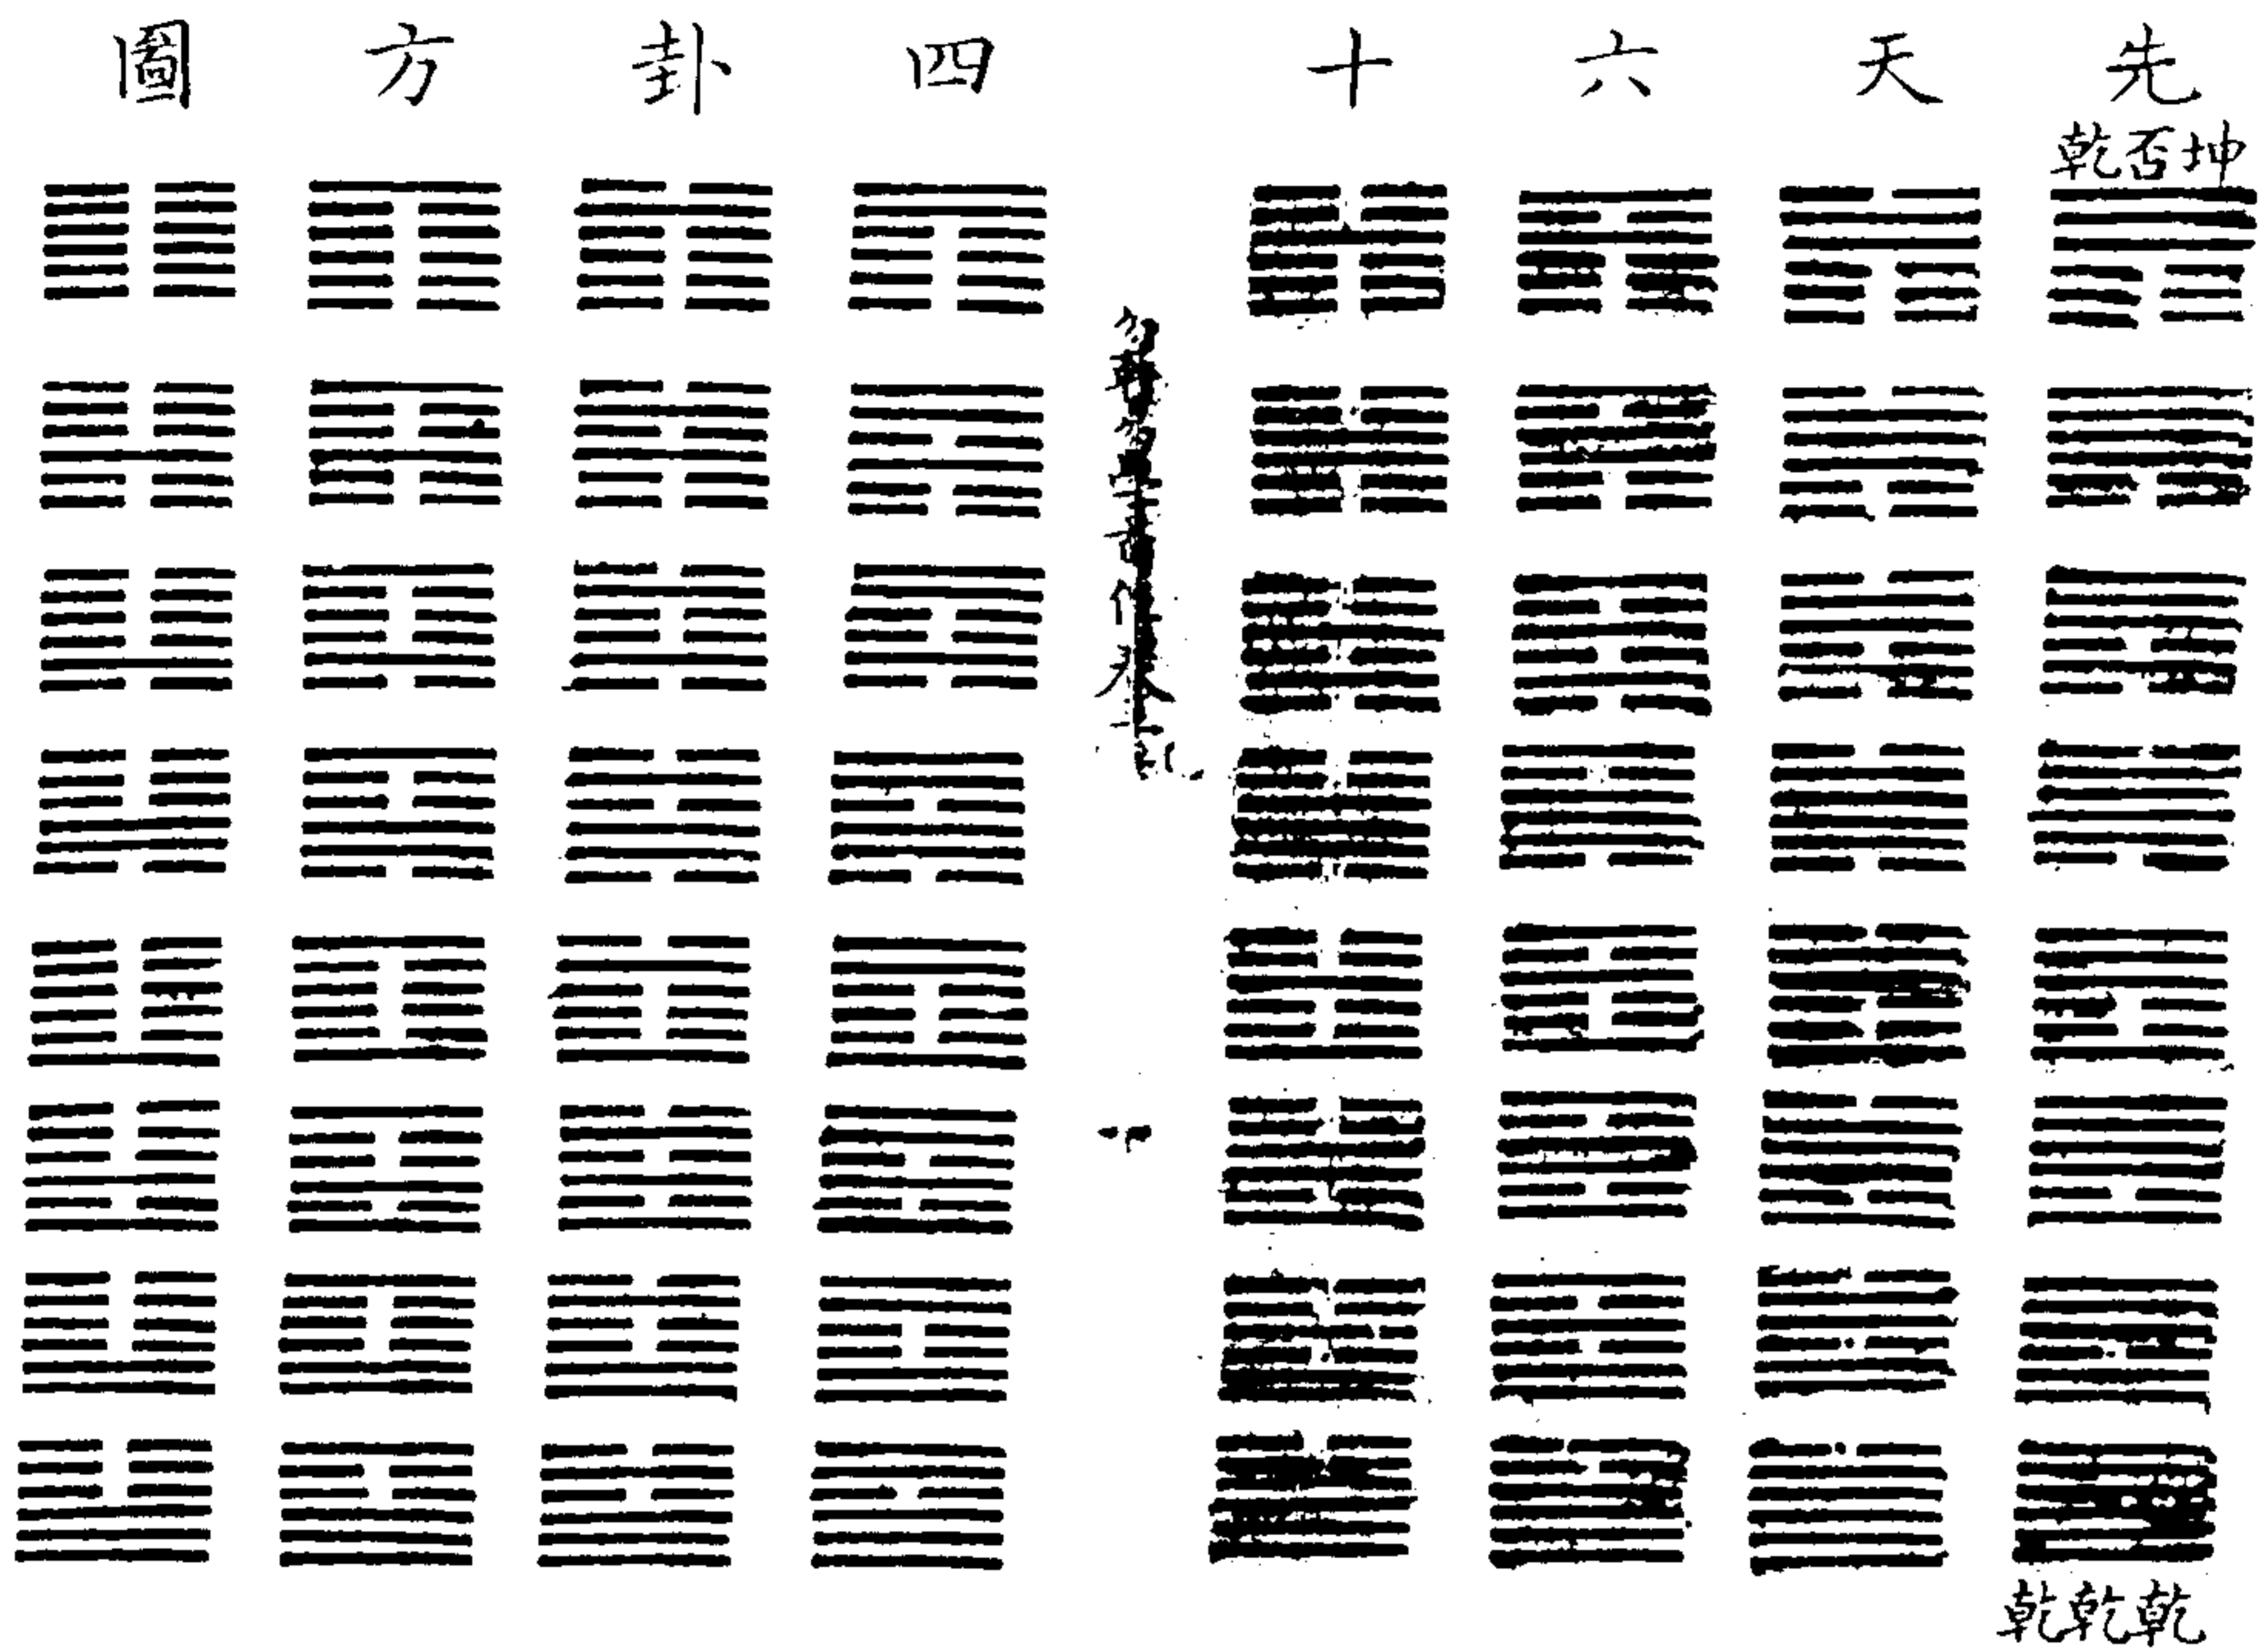 先天六十四卦方圖
坤否乾
乾乾乾